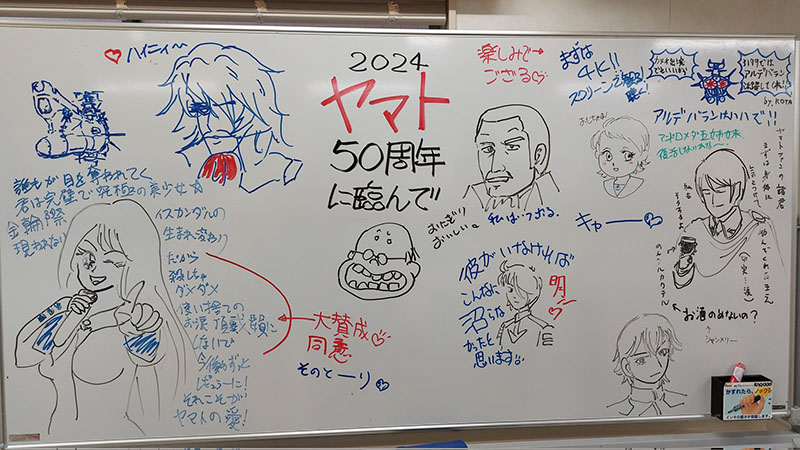 ハイニィ〜
誰もが目を奪われてく
君は完璧で究極の美少女
金輪際
現われない
イスカンダルの
生まれ変わり
だから
殺しちゃ
ダメダメ
使い捨ての
お涙頂戴要員に
しないで
今後もずっと
それこそが
ヤマトの愛!
大賛成
同意
そのとーり
2024
ヤマト
50周年
に臨んで
楽しみで
ござる
まずは
4K!!
スクリーンで観る
驚く!
おにぎり
おいしい。
私はいつおる。
彼がいなければ
こんなに
沼らな
かったと
思います
キャー
アルデバランはハハで!!
アンドロメダ五姉妹
復活しないかな〜
3199では
アルデバラン
活躍してくれ!!
by KOTA
ヤマトファンの諸君
お酒のめないの?
シャンメリー
かすれたら、ノック